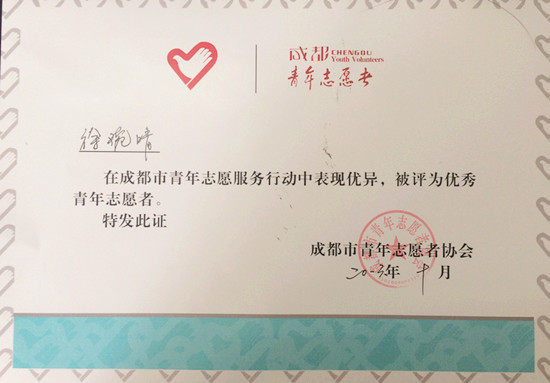 成都 CHENGDU
Youth Volunteers
青年志愿者
徐婉晴
在成都市青年志愿服务行动中表现优异，被评为优秀
青年志愿者。
特发此证
成都市青年志愿者协会
年十月